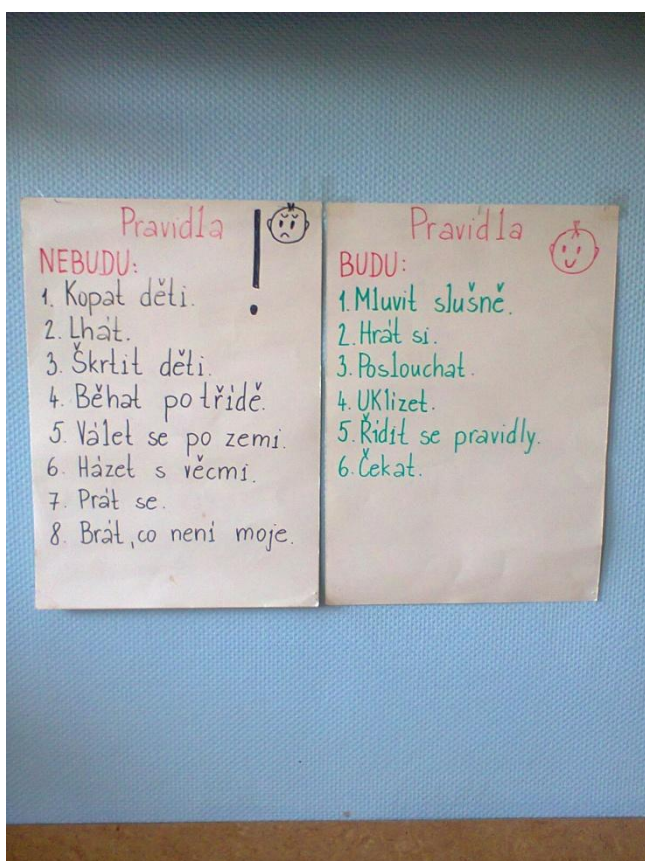 Pravidla
NEBUDU:
1. Kopat děti.
2. Lhát.
3. Škrtit děti.
4. Běhat po třídě.
5. Válet se po zemi.
6. Házet s věcmi.
7. Prát se.
8. Brát, co není moje.
Pravidla
BUDU:
1. Mluvit slušně.
2. Hrát si.
3. Poslouchat.
4. UKlízet.
5. Řídit se pravidly.
6. Čekat.